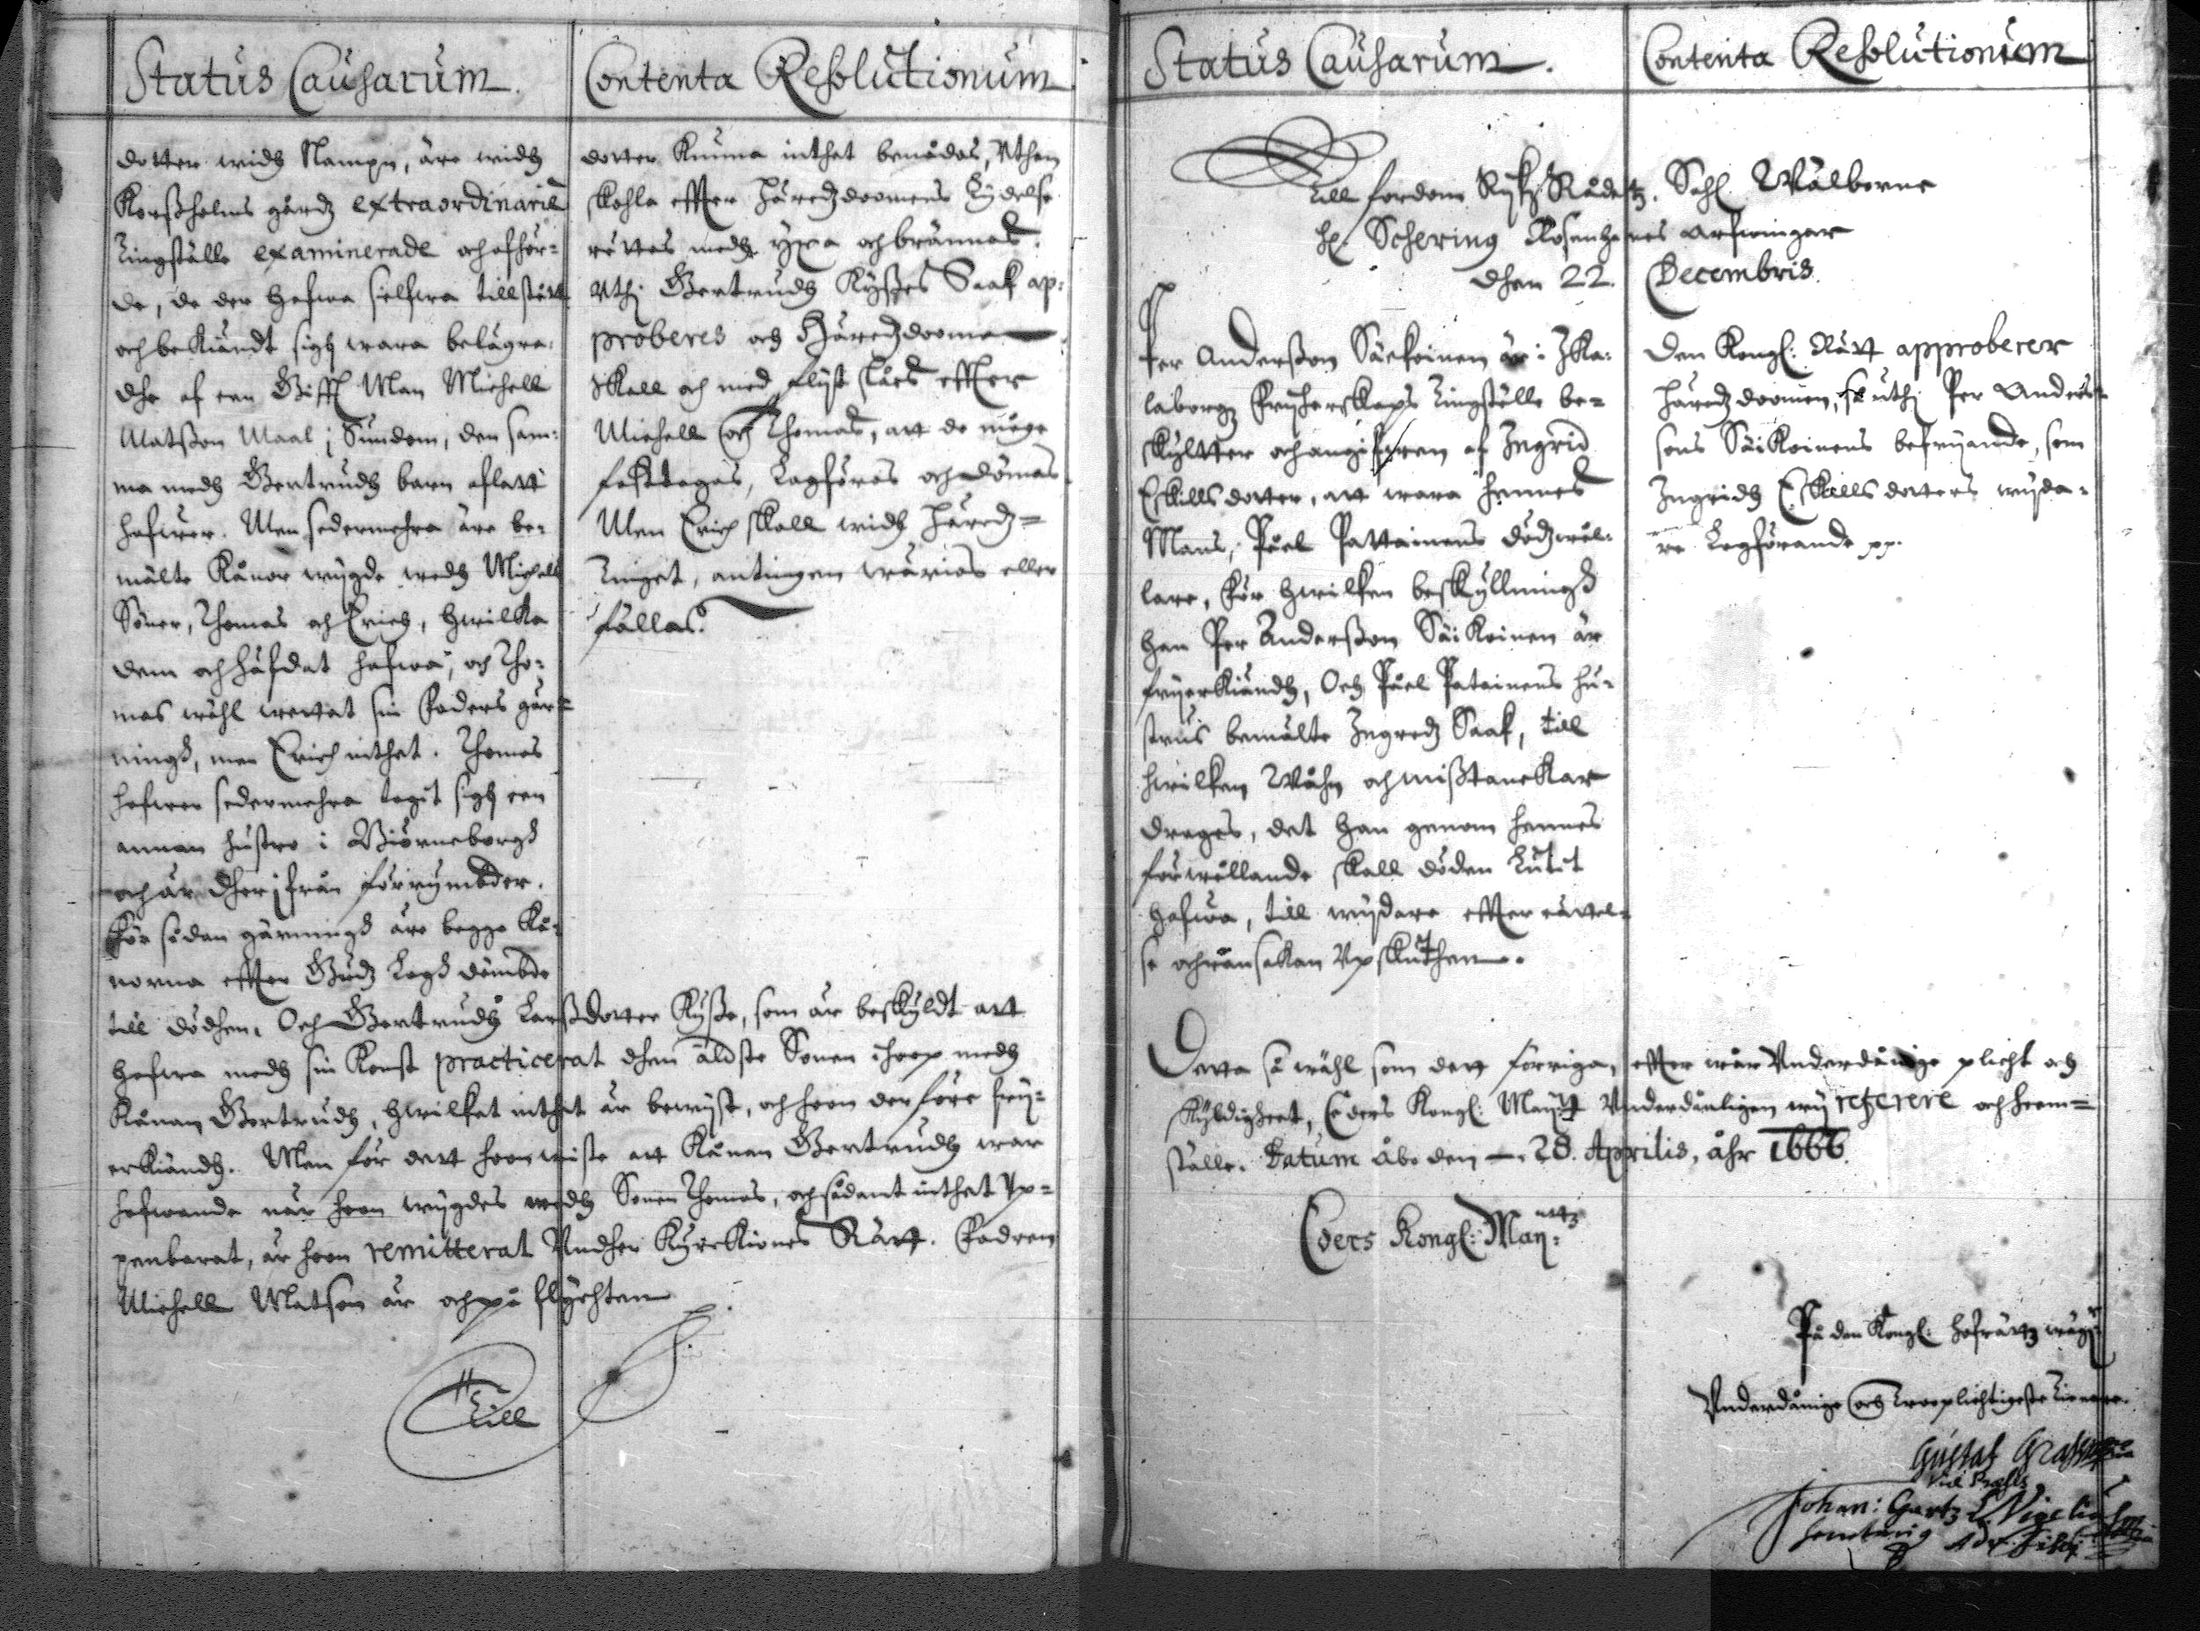 Status Causarum.
dotter widh Nampn, äre widh
Korßholms gårdz extraordinarie
Tingställe examinerade och afhör=
de, de der hafwa sielfwa tillståt
och bekiändt sigh wara belägra-
dhe af een Gifft Man Michell
Matßon Maal i Sundom, den sam-
ma medh Gertrudh barn aflatt
hafwer. Men sedermehra äre be-
mälte Kånor wijgde wedh Michells
Söner, Thomas och Erich, hwilka
dem och häfdat hafwa, och Tho-
mas wähl wettat sin Faders gär=
ningh, men Erich inthet. Thomas
hafwer sedermehra tagit sigh een
annan hustro i Biörneborgh
och är dher ifrån förrymbder.
För sådan gärningh äre begge Kå-
norna effter Gudz Lagh dömbde
till dödhen. Och Gertrudh Larßdotter Kyße, som är beskyldt att
hafwa medh sin Konst practicerat dhen äldste Sonen ihoop medh
Kånan Gertrudh, hwilket inthet är bewijst, och hoon derföre frij-
erkiändh. Men för dett hoon wiste att Kånan Gertrudh war
hafwande när hoon wijgdes wedh Sonen Thomas, och sådant inthet Up=
penbarat, är hoon remitterat Undher Kyrckiones Rätt. Fadren
Michell Matson är och på flychten
Till
Contenta Resolutionum
dotter kunna inthet benådas, Uthan
skohla effter Häredzdoomens Lydelse
rättas medh yxa och brännas.
Uthi Gertrudh Kyßes Saak ap-
proberes och Häredzdoomen
Skall och med flijt slåes effter
Michell och Thomas, att de måge
fasttagas, Lagföras och dömas
Men Erich skall widh Häredz=
Tinget, antingen wärias eller
fällas.
Status Causarum.
Contenta Resolutionum
Till fordom Rijkz Rådetz. Sehl Wälborne
Hr. Schering Rosenhanes arfwingar
dhen 22. Decembris.
Per Anderßon Säikoinen är i Ika-
laborgz Frijherskaps Tingställe be=
skyltter och angifwen af Ingrid
Eskillsdotter, att wara hennes
Mans, Påel Pattainens dödzwål-
lare, För hwilken beskyllningh
han Per Anderßon Säikoinen är
frijerkiändh, Och Påel Patainens hu-
strus bemälte Ingredz Saak, till
hwilken Wåhn och mißtanckar
drages, det han genom hennes
förwållande skall döden Lutit
hafwa, till wijdare effterrättel-
se och ransakan Upskuthen.
Den Kongl: Rätt approberer
Häredzdoomen, så uthi Per Anders-
sons Säikoinens befrijande, som
Ingridh Eskillsdotters wijda-
re Lagförande pp.
Detta så wähl som dett förriga, effter wår Underdånige plicht och
skyldigheet, Eders Kongl: Maij:tt Underdånligen wij referere och heem=
ställe. Datum Åbo den 28. Aprilis, åhr 1666.
Eders Kongl: Maij:
På den Kongl: Hofrättz wägn
Underdånige och Trooplichtigeste Tienare.
Gustaf
Vice
Johan: Gartz
Secretarius Adv. Fisci